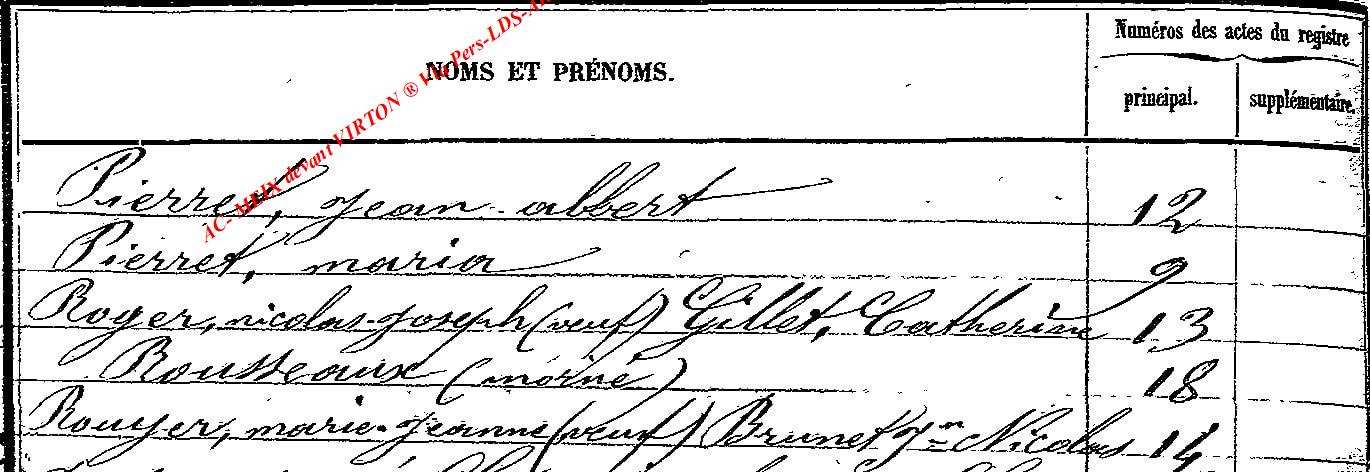 Numéros des actes du registre
NOMS ET PRÉNOMS.
principal. supplémentaire.
AC- MEIX devant VIRTON ® Via Pers-LDS-
Pierret, jean albert 12
Pierret, maria 9
Roger, nicolas-joseph (veuf) Gillet, Catherine 13
Rousseaux (morné) 18
Rouyer, marie-jeanne (veuf) Brunet Jn Nicolas 14